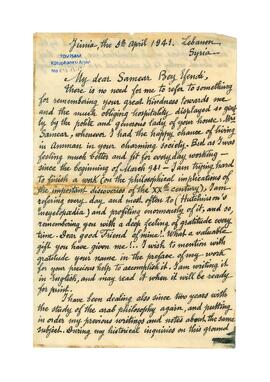 Jünia, the 5th April 1943. Lebanon
Syria.
TOVİSAM
Kütüphanesi Arşivi
No
My dear Samear Bey Yendi,
there is no need for me to refer to something
for remembering your great kindness towards me
and the much obliging hospitality displayed so
by the polite and generous lady of your home, Mrs
Samear, whenever I had the happy chance of living
in Amman in your charming society. But as I was
feeling much better and fit for everyday working –
since the beginning of March 941 – I am trying hard
to finish a work (on the philosophical implications of
the important discoveries of the XXth century), I am
refering every day and most often to (Hutchinson's
Encyclopadia) and profiting enormously of it, and so,
remembering you with a deep feeling of gratitude every
time. Dear good Friend of mine!! What a valuable
gift you have given me!!.. I wish to mention with
gratitude your name in the preface of my work
for your previous help to accomplish it. I am writing it
in English, and may read it when it will be ready
for print.
I have been dealing also since two years with
the study of the arab philosophy again, and putting
in order my previous writings and notes about the same
subject. During my historical inquiries on this ground